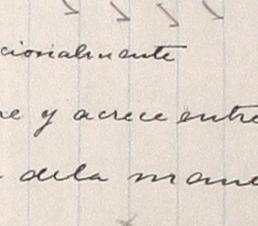 cionalmente
e y acrece entre
dela mane